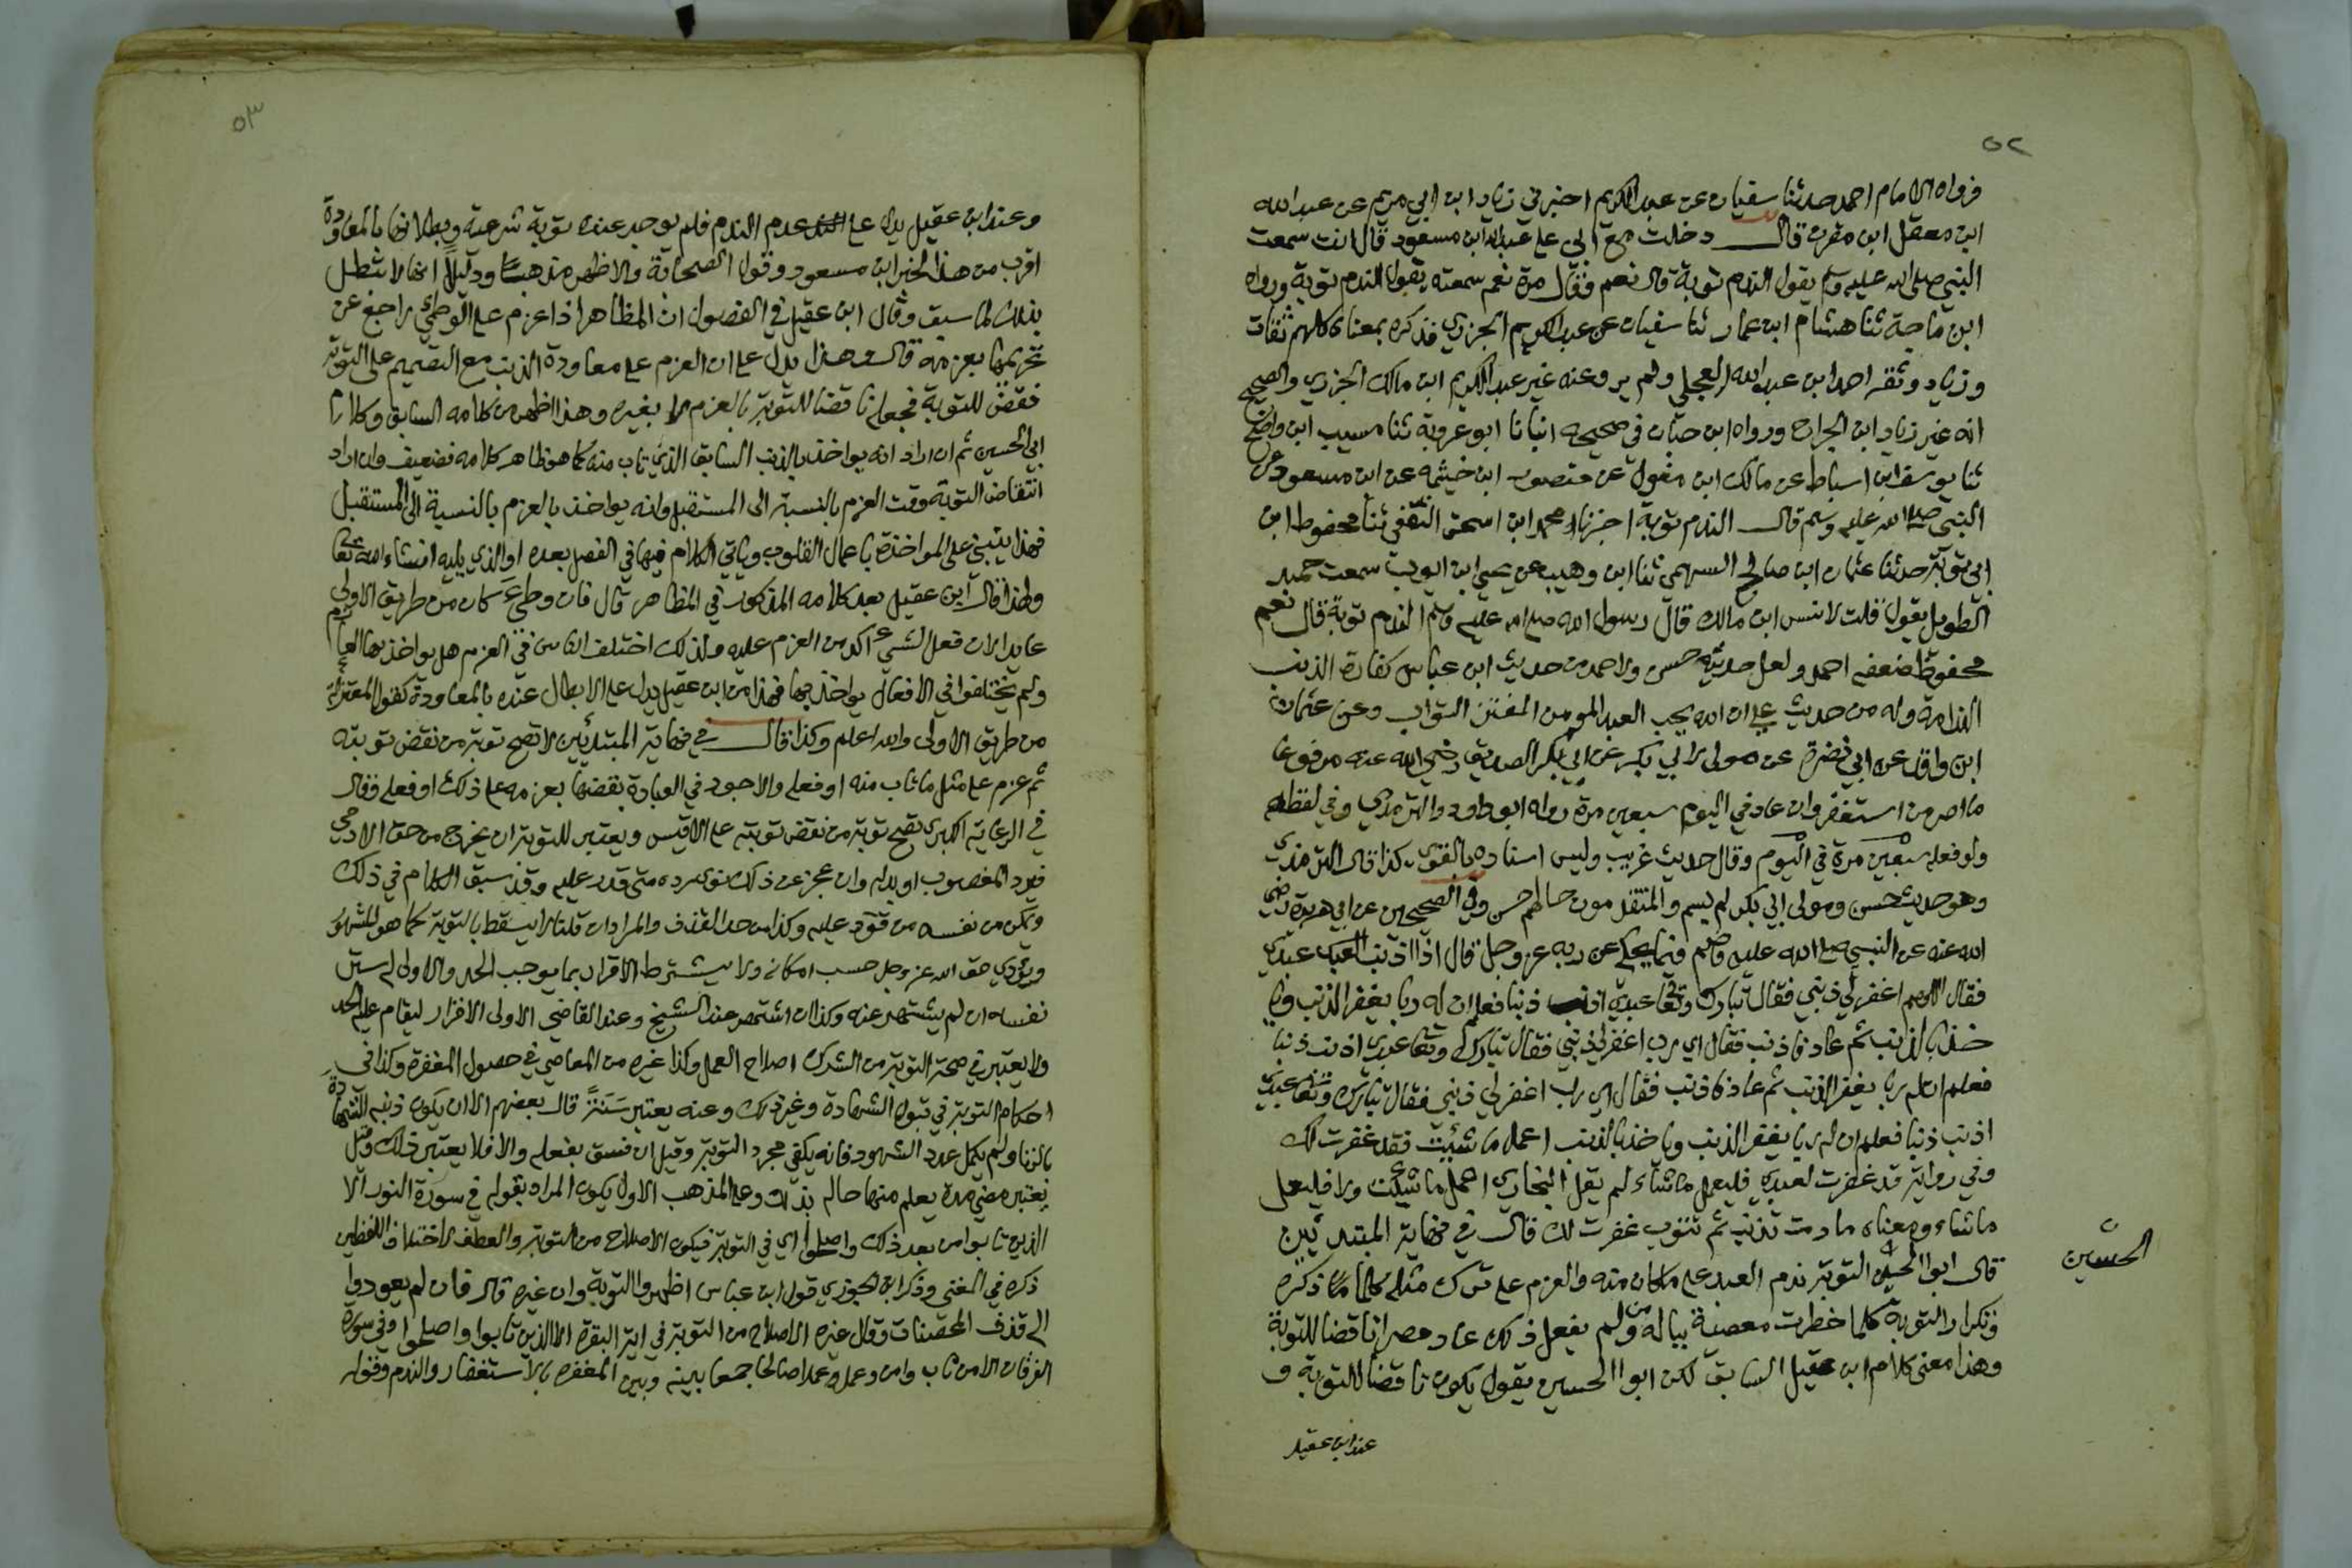 ٥٢
فرواه الامام احمد حدثنا سفيان عن عبد الكريم اخبرني زياد ابن ابي مريم عن عبد الله
ابن معقل ابن مقرن قال دخلت مع ابي على عبد الله ابن مسعود قال انت سمعت
النبي صلى الله عليه وسلم يقول الندم توبة قال نعم وقال مرة نعم سمعته يقول الندم توبة ورواه
ابن ماجة ثنا هشام ابن عمار ثنا سفيان عن عبد الكريم الجزري فذكره بمعناه كلهم ثقات
وزياد وثقه احمد ابن عبد الله العجلي ولم يروعنه غير عبد الكريم ابن مالك الجزري والصحيح
انه غير زياد ابن الجراح ورواه ابن حبان في صحيحه انبانا ابو عروبة ثنا مسيب ابن واضح
ثنا يوسف ابن اسباط عن مالك ابن مغول عن منصور ابن خيثمه عن ابن مسعود عن
النبي صلى الله عليه وسلم قال الندم توبة اخبرنا محمد ابن اسحق الثقفي ثنا محفوظ ابن
ابي توبة حدثنا عثمان ابن صالح السهمي ثنا ابن وهب عن يحيى ابن ايوب سمعت حميد
الطويل يقول قلت لانس ابن مالك قال رسول الله صلى الله عليه وسلم الندم توبة قال نعم
محفوظ ضعفه احمد ولعل حديثه حسن ولاحمد من حديث ابن عباس كفارة الذنب
الندامة وله من حديث علي ان الله يحب العبد المومن المفتن التواب وعن عثمان
ابن واقد عن ابي نضرة عن مولى لابي بكر عن ابي بكر الصديق رضي الله عنه مرفوعا
ما اصر من استغفر وان عاد في اليوم سبعين مرة رواه ابو داود والترمذي وفي لفظه
ولو فعله سبعين مرة في اليوم وقال حديث غريب وليس اسناده بالقوي كذا قال الترمذي
وهو حديث حسن ومولى ابي بكر لم يسم والمتقدمون حالهم حسن وفي الصحيحين عن ابي هريرة رضي
الله عنه عن النبي صلى الله عليه وسلم فيما يحكي عن ربه عز وجل قال اذا اذنب عبدي
فقال اللهم اغفر لي ذنبي فقال تبارك وتعا عبدي اذنب ذنبا فعلم ان له ربا يغفر الذنب ويا
خذ بالذنب ثم عاد فاذنب فقال اي رب اغفر لي ذنبي فقال تبارك وتعا عبدي اذنب ذنبا
فعلم ان له ربا يغفر الذنب ثم عاد فاذنب فقال اي رب اغفر لي ذنبي فقال تبارك وتعا عبدي
اذنب ذنبا فعلم ان له ربا يغفر الذنب وياخذ بالذنب اعمل ما شئت فقد غفرت لك
وفي رواية قد غفرت لعبدي فليعمل ما شاء لم يقل البخاري اعمل ما شئت ولا فليعمل
ما شاء ومعناه ما دمت تذنب ثم تتوب غفرت لك قال في نهاية المبتدئين
قال ابو الحسين التوبة ندم العبد على ما كان منه والعزم على ترك مثله كلما ذكره
الحسين
وتكرار التوبة كلما خطرت معصية بباله ومن لم يفعل ذلك عاد مصرا ناقضا للتوبة
وهذا معنى كلام ابن عقيل السابق لكن ابو الحسين يقول يكون ناقضا للتوبة و
عند ابن عقيل
٥٣
وعند ابن عقيل يدل على عدم الندم فلم يوجد عنده توبة شرعية وبطلانها بالمعاودة
اقرب من هذا لخبر ابن مسعود وقول الصحابة والاظهر مذهبا ودليلا انها لا تبطل
بذلك لما سبق وقال ابن عقيل في الفصول ان المظاهر اذا عزم على الوطئ راجع عن
تحريمها بعزمه قال وهذا يدل على ان العزم على معاودة الذنب مع التصميم على التوبة
نقض للتوبة فجعله ناقضا للتوبة بالعزم لا بغيره وهذا اظهر من كلامه السابق وكلام
ابي الحسين ثم ان اراد انه يواخذ بالذنب السابق الذي تاب منه كما هو ظاهر كلامه فضعيف وان اراد
انتقاض التوبة وقت العزم بالنسبة الى المستقبل وانه يواخذ بالعزم بالنسبة الى المستقبل
فهذا ينبني على المواخذة باعمال القلوب وياتي الكلام فيها في الفصل بعده او الذي يليه ان شاء الله تعا
ولهذا قال ابن عقيل بعد كلامه المذكور في المظاهر قال فان وطئ كان من طريق الاولى
عايدا لان فعل الشيء اكد من العزم عليه ولذلك اختلف الناس في العزم هل يواخذ بها العازم
ولم يختلفوا في الافعال يواخذ بها فهذا من ابن عقيل يدل على الابطال عنده بالمعاودة كقول المعتزلة
من طريق الاولى والله اعلم وكذا قال في نهاية المبتدئين لا تصح توبة من نقض توبته
ثم عزم على مثل ما تاب منه او فعله والاجود في العبادة نقضها بعزمه على ذلك او فعله فقال
في الرعاية الكبرى تصح توبة من نقض توبته على الاقيس ويعتبر للتوبة ان يخرج من حق الادمي
فيرد المغصوب او بدله وان عجز عن ذلك نوى رده متى قدر عليه وقد سبق الكلام في ذلك
ويمكن من نفسه من قود عليه وكذا من حد القذف والمراد ان قلنا لا يسقط بالتوبة كما هو المشهور
ويؤدي حق الله عز وجل حسب امكانه ولا يشترط الاقرار بما يوجب الحد والاولى له ستر
نفسه ان لم يشتهر عنه وكذا ان اشتهر عند الشيخ وعند القاضي الاولى الاقرار ليقام عليه الحد
ولا يعتبر في صحة التوبة من الشرك اصلاح العمل وكذا غيره من المعاصي في حصول المغفرة وكذا في
احكام التوبة في قبول الشهادة وغير ذلك وعنه يعتبر سنة قال بعضهم الا ان يكون ذنبه الشهادة
بالزنا ولم يكمل عدد الشهود فانه يكفي مجرد التوبة وقيل ان فسق بفعله والا فلا يعتبر ذلك وقيل
يعتبر مضي مدة يعلم منها حاله بذلك وعلى المذهب الاول يكون المراد بقوله في سورة النور الا
الذين تابوا من بعد ذلك واصلحوا اي في التوبة فيكون الاصلاح من التوبة والعطف لاختلاف اللفظين
ذكره في المغني وذكر ابن الجوزي قول ابن عباس اظهروا التوبة وان غيره قال فان لم يعودوا
الى قذف المحصنات وقال غيره الاصلاح من التوبة في اية البقرة الا الذين تابوا واصلحوا وفي سورة
الفرقان الا من تاب وامن وعمل عملا صالحا جمعا بينه وبين المغفرة بالاستغفار والندم وقوله